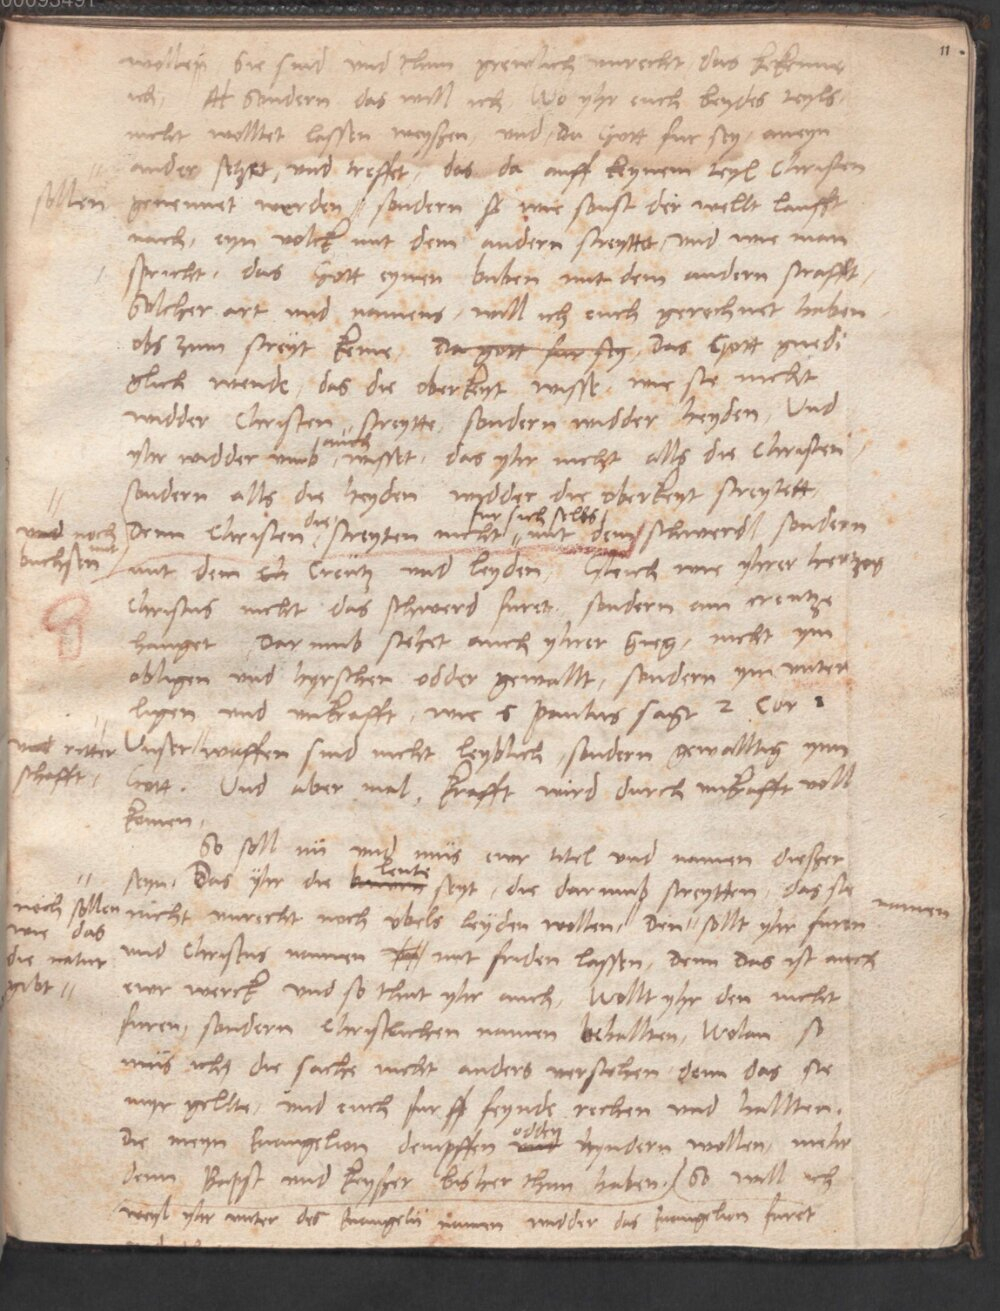 00093491
11
wollen, Sie sind und thun grewlich unrecht, das bekenne
ich, Sondern das will ich, Wo yhr euch beydes teyls,
nicht wolltet lassen weysen, und, Da Gott fur sey, aneyn
ander setzet, und treffet, das da auff keynem teyl Christen
sollen
genennet werden, sondern wie sonst der wellt laufft
nach, eyn volck mit dem andern streyttet, und wie man
spricht, das Gott eynen buben mit dem andern strafft,
Solcher art und namens, will ich euch gerechnet haben
obs zum streyt keme, Da gott fur sey, Das Gott gnedi
glich wende, das die oberkeyt wisse, wie sie nicht
widder Christen streytte, sondern widder heyden, Und
auch
yhr widder umb wisset, das yhr nicht alls die Christen,
sondern alls die heyden widder die oberkeyt streytett,
und noch mit
buchsen
die fur sich selbs
Denn Christen, streyten nicht mit dem schwerd sondern
mit dem Creutz und leyden, Gleich wie yhrer hertzog
Christus nicht das schwerd furet, sondern am creutze
hanget Darumb stehet auch yhrer sieg, nicht ym
obligen und hyrschen odder gewallt, sondern ym unter
ligen und unkrafft, wie S Paulus sagt 2 Cor 1
und ritter
schafft,
Unser waffen sind nicht leyblich, sondern gewalltig ynn
Gott. Und aber mal, Krafft wird durch unkrafft voll
komen,
So soll nu und mus ewr titel und namen dieser
leute
seyn, Das yhr die seyt, die darumb streytten, das sie
noch sollen
wie das
die natur
gibt
nicht unrecht noch ubels leyden wollen, Den sollt yhr furen
namen
und Christus namen mit friden lassen, Denn das ist auch
ewr werck und so thut yhr auch, Wollt yhr den nicht
furen, sondern Christlichen namen behallten, Wolan so
mus ichs die sache nicht anders verstehen denn das sie
myr gellte, und euch fur feynde rechen und hallten,
odder
Die meyn Euangelion dempffen und hyndern wollen, mehr
denn Bapst und keyser bisher than haben, So will ich
weyl yhr unter des Euangelii namen widder das Euangelion furet